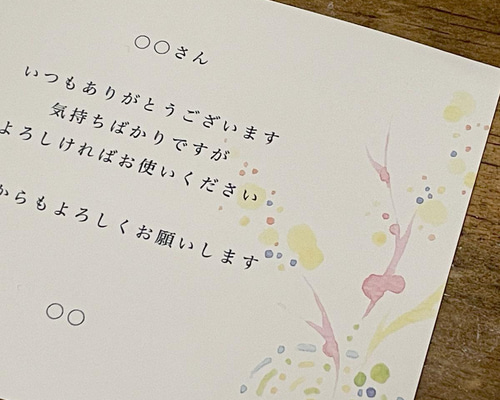 〇〇さん
いつもありがとうございます
気持ちばかりですが
よろしければお使いください
からもよろしくお願いします
〇〇